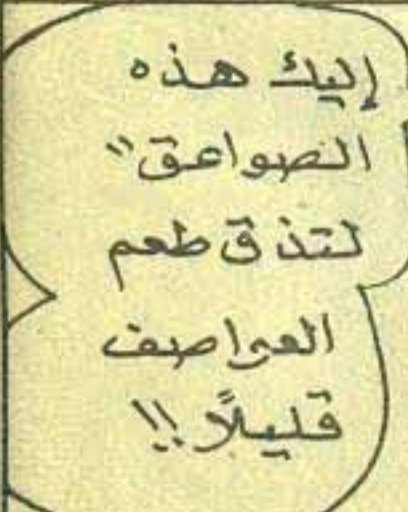 إليك هذه
الصواعق"
لتذق طعم
العواصف
قليلاً!!